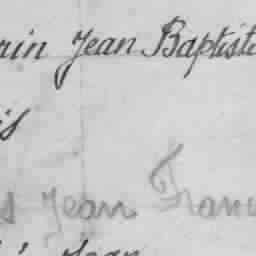 rin Jean Baptist
is
s Jean Franc
Jean